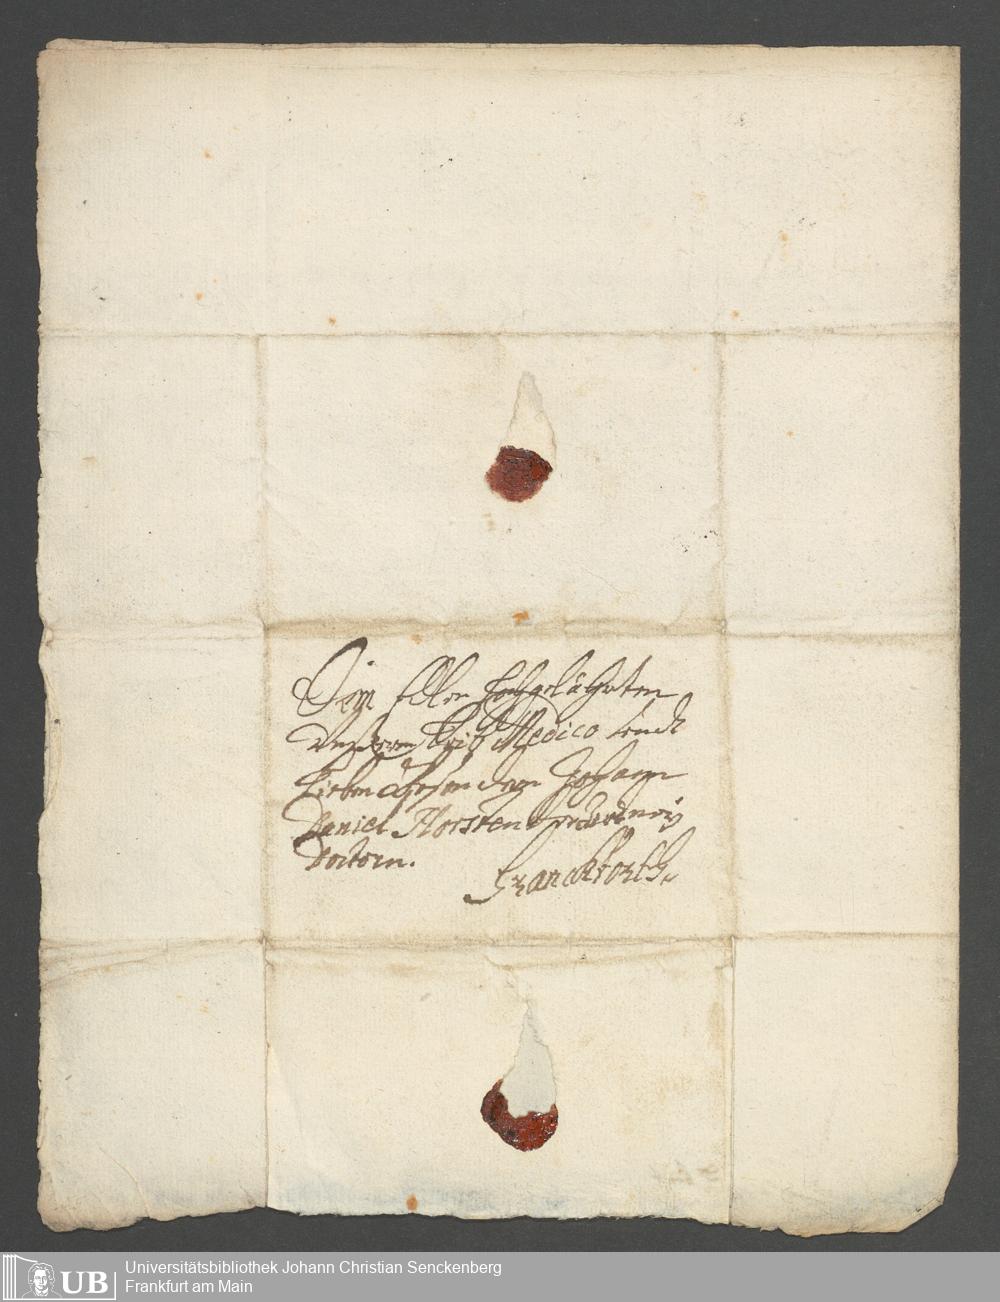 Dem Edlen hochgelährten
unserm Leib Medico undt
Lieben getrewen Johann
Daniel Horsten der
Doctorn.
Franckforth.
UB
Universitätsbibliothek Johann Christian Senckenberg
Frankfurt am Main